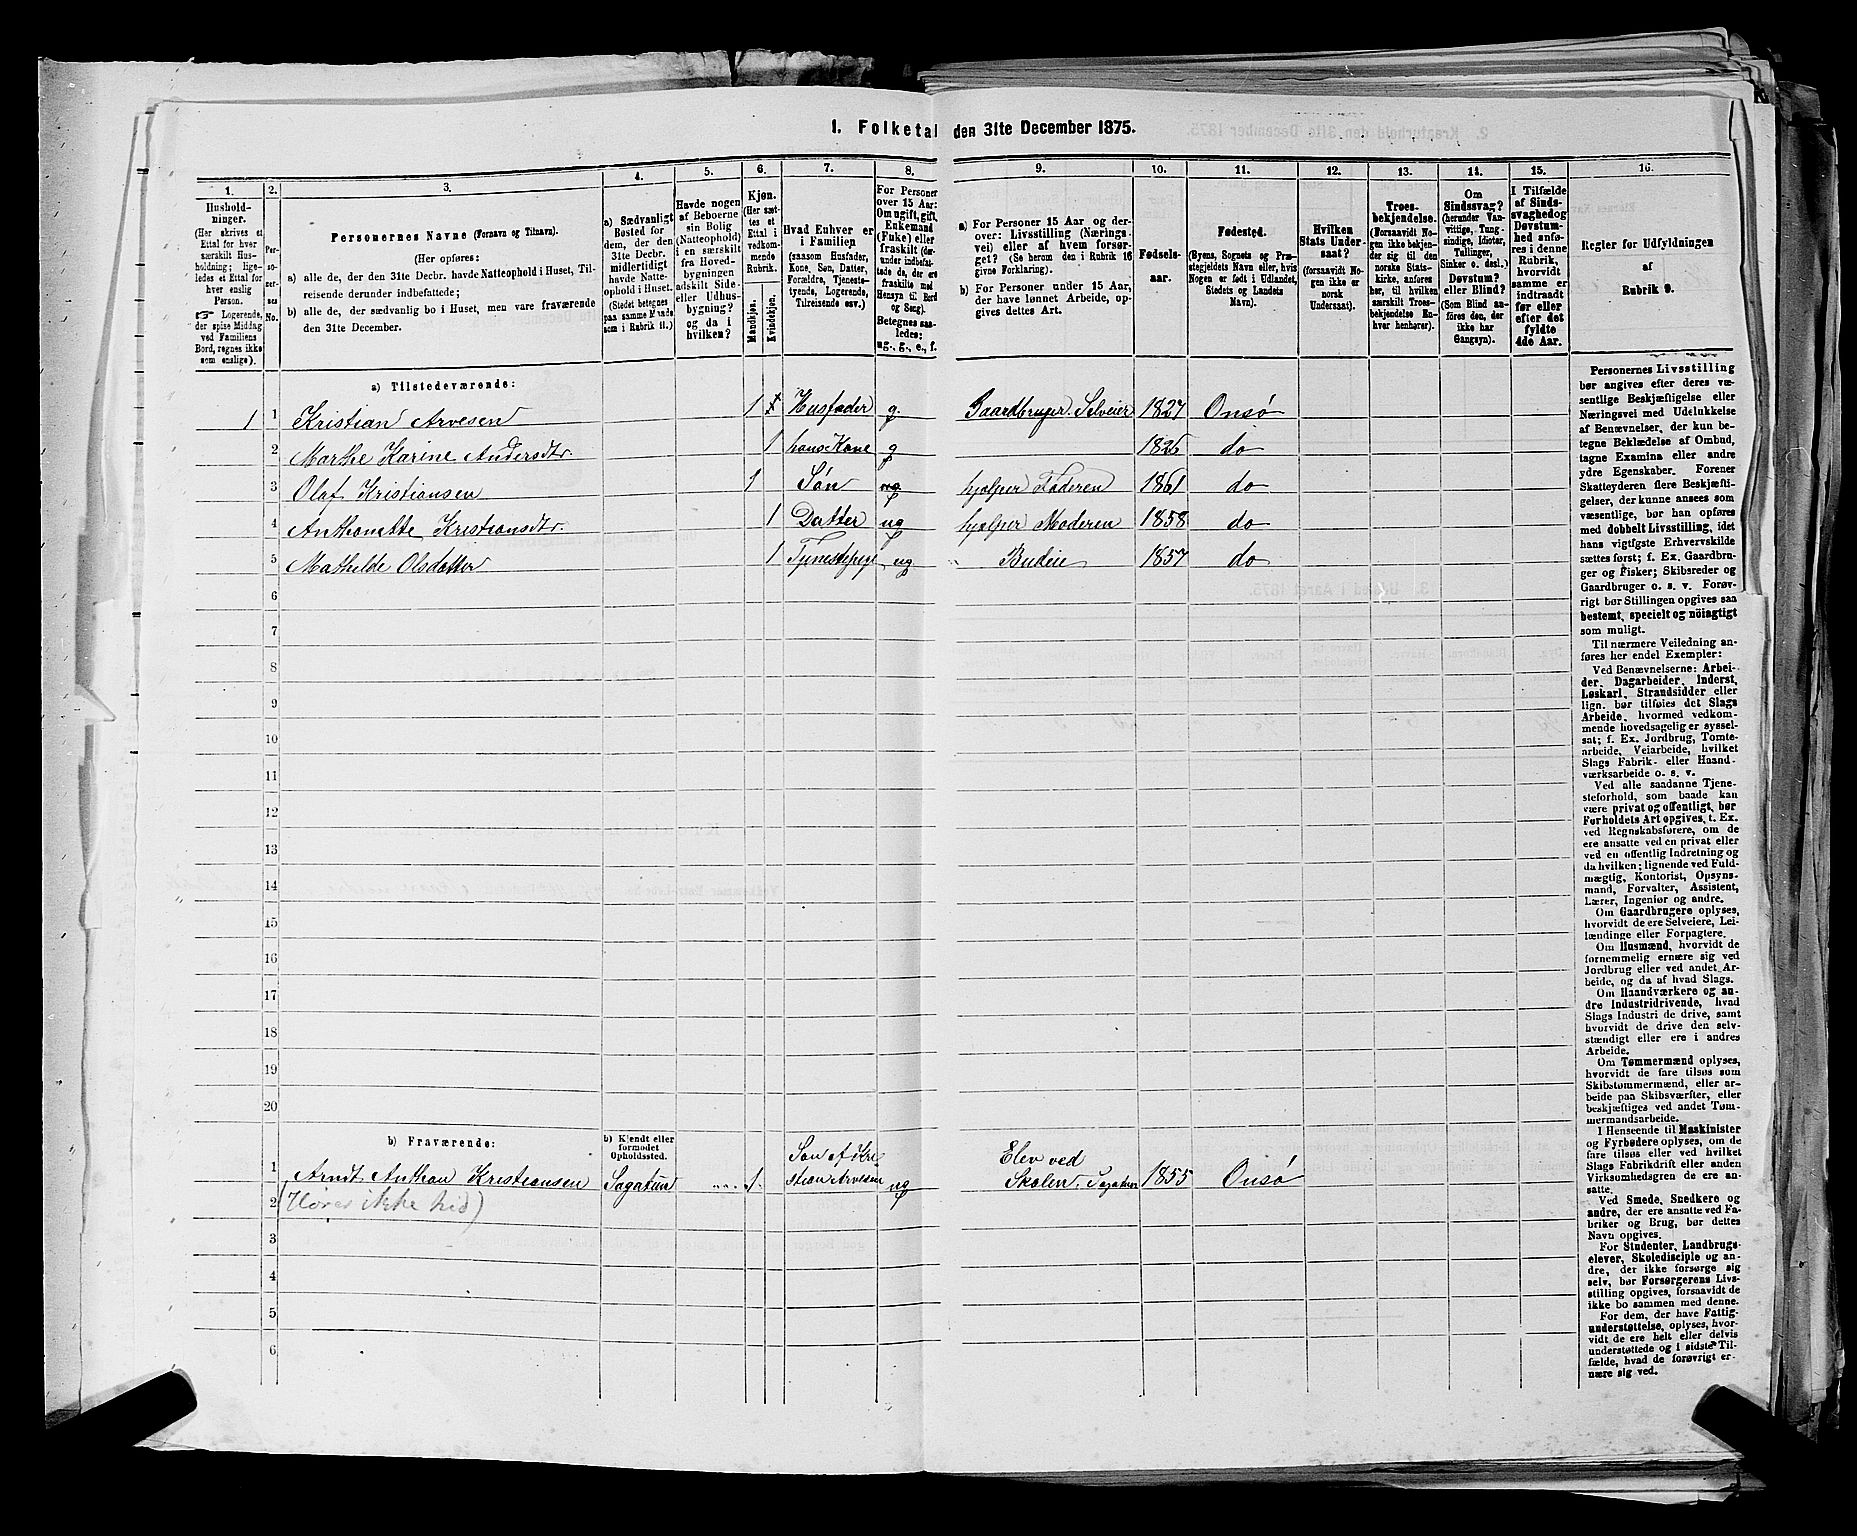 1. Folketal den 31te December 1875.
1.
2.
3.
4.
5.
6.
7.
8.
9.
10.
11.
12.
13.
14.
15.
16.
Hushold-
ninger.
(Her skrives et
Ettal for hver
særskilt Hus-
holdning; lige-
ledes et Ettal for
hver enslig
Person.
☞ Logerende,
der spise Middag
ved Familiens
Bord, regnes ikke
som enslige).
Per-
so-
ner-
nes
No.
Personernes Navne (Fornavn og Tilnavn).
(Her opføres:
a) alle de, der den 31te Decbr. havde Natteophold i Huset, Til-
reisende derunder indbefattede;
b) alle de, der sædvanlig bo i Huset, men vare fraværende
den 31te December.
a) Sædvanligt
Bosted for
dem, der den
31te Decbr.
midlertidigt
havde Natte-
ophold i Huset.
(Stedet betegnes
paa samme Maade
som i Rubrik 11.)
Havde nogen
af Beboerne
sin Bolig
(Natteophold)
i en særskilt
fra Hoved-
bygningen
adskilt Side-
eller Udhus-
bygning?
og da i
hvilken?
Kjøn.
(Her sæt-
tes et
Ettal i
vedkom-
mende
Rubrik.
Mandkjøn.
Kvindekjøn.
Hvad Enhver er
i Familien
(saasom Husfader,
Kone, Søn, Datter,
Forældre, Tjeneste-
tyende, Logerende,
Tilreisende osv.)
For Personer
over 15 Aar:
Om ugift, gift,
Enkemand
(Fuke) eller
fraskilt (der-
under indbefat-
tede de, der ere
fraskilte med
Hensyn til Bord
og Seng).
Betegnes saa-
ledes:
ug., g., e., f.
a) For Personer 15 Aar og der-
over: Livsstilling (Nærings-
vei) eller af hvem forsør-
get? (Se herom den i Rubrik 16
givne Forklaring).
b) For Personer under 15 Aar,
der have lønnet Arbeide, op-
gives dettes Art.
Fødsels-
aar.
Fødested.
(Byens, Sognets og Præ-
stegjeldets Navn eller, hvis
Nogen er født i Udlandet,
Stedets og Landets
Navn).
Hvilken
Stats Under-
saat?
(forsaavidt No-
gen ikke er
norsk
Undersaat).
Troes-
bekjendelse.
(Forsaavidt No-
gen ikke bekjen-
der sig til den
norske Stats-
kirke, anføres
her, til hvilken
særskilt Troes-
bekjendelse En-
hver henhører).
Om
Sindssvag?
(herunder Van-
vittige, Tung-
sindige, Idioter,
Tullinger,
Sinker o. desl.)
Døvstum?
eller Blind?
(Som Blind an-
føres den, der
ikke har
Gangsyn).
I Tilfælde
af Sinds-
svaghedog
Døvstum-
hed anfø-
res i denne
Rubrik,
hvorvidt
samme er
indtraadt
før eller
efter det
fyldte
4de Aar.
Regler for Udfyldningen
af
Rubrik 9.
a) Tilstedeværende:
1 1 Kristian Arvesen 1 Husfader g. Gaardbruger. Selveier 1827 Onsø
2 Marthe Karine Andersdtr. 1 hans Kone g 1826 do
3 Olaf Kristiansen 1 Søn hjælper Faderen 1861 do
4 Anthonette Kristiansdtr. 1 Datter ug hjælper Moderen 1858 do
5 Mathilde Olsdatter 1 Tjenestepige ug Budeie 1857 do
6
7
8
9
10
11
12
13
14
15
16
17
18
19
20
b) Fraværende:
b) Kjendt eller
formodet
Opholdssted.
1 Arndt Anthon Kristiansen Sagatun 1. Søn af Kri-
stian Arvesen ug Elev ved
Skolen, Sagatun 1855 Onsø
2 (Høres ikke hid)
3
4
5
6
Personernes Livsstilling
bør angives efter deres væ-
sentlige Beskjæftigelse eller
Næringsvei med Udelukkelse
af Benævnelser, der kun be-
tegne Beklædelse af Ombud,
tagne Examina eller andre
ydre Egenskaber. Forener
Skatteyderen flere Beskjæfti-
gelser, der kunne ansees som
væsentlige, bør han opføres
med dobbelt Livsstilling, idet
hans vigtigste Erhvervskilde
sættes først; f. Ex. Gaardbru-
ger og Fisker; Skibsreder og
Gaardbruger o. s. v. Forøv-
rigt bør Stillingen opgives saa
bestemt, specielt og nöiagtigt
som muligt.
Til nærmere Veiledning an-
føres her endel Exempler:
Ved Benævnelserne: Arbei-
der, Dagarbeider, Inderst,
Løskarl, Strandsidder eller
lign. bør tilføies det Slags
Arbeide, hvormed vedkom-
mende hovedsagelig er syssel-
sat; f. Ex. Jordbrug, Tomte-
arbeide, Veiarbeide, hvilket
Slags Fabrik- eller Haand-
værksarbeide o. s. v.
Ved alle saadanne Tjene-
steforhold, som baade kan
være privat og offentligt, bør
Forholdets Art opgives, t. Ex.
ved Regnskabsførere, om de
ere ansatte ved en privat eller
ved en offentlig Indretning og
da hvilken; lignende ved Fuld-
mægtig, Kontorist, Opsyns-
mand, Forvalter, Assistent,
Lærer, Ingeniør og andre.
Om Gaardbrugere oplyses,
hvorvidt de ere Selveiere, Lei-
lændinge eller Forpagtere.
Om Husmænd, hvorvidt de
fornemmelig ernære sig ved
Jordbrug eller ved andet Ar-
beide, og da af hvad Slags.
Om Haandværkere og an-
dre Industridrivende, hvad
Slags Industri de drive, samt
hvorvidt de drive den selv-
stændigt eller ere i andres
Arbeide.
Om Tømmermænd oplyses,
hvorvidt de fare tilsøs som
Skibstømmermænd, eller ar-
beide paa Skibsværfter, eller
beskjæftiges ved andet Tøm-
mermandsarbeide.
I Henseende til Maskinister
og Fyrbødere oplyses, om de
fare tilsøs eller ved hvilket
Slags Fabrikdrift eller anden
Virksomhedsgren de ere an-
satte.
Ved Smede, Snedkere og
andre, der ere ansatte ved Fa-
briker og Brug, bør dettes
Navn opgives.
For Studenter, Landbrugs-
elever, Skoledisciple og an-
dre, der ikke forsørge sig
selv, bør Forsørgerens Livs-
stilling opgives, forsaavidt de
ikke bo sammen med denne.
For dem, der have Fattig-
understøttelse, oplyses, hvor-
vidt de ere helt eller delvis
understøttede og i sidste Til-
fælde, hvad de forøvrigt er-
nære sig ved.